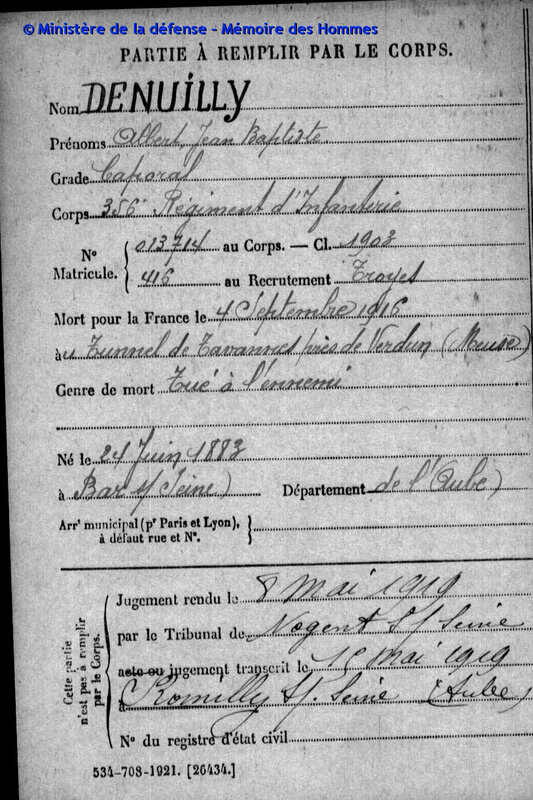 © Ministère de la défense - Mémoire des Hommes
PARTIE À REMPLIR PAR LE CORPS.
Nom DENUILLY
Prénoms Albert Jean Baptiste
Grade Caporal
Corps 356e Régiment d'Infanterie
No Matricule. { 013714 au Corps. — Cl. 1903
416 au Recrutement Troyes
Mort pour la France le 4 Septembre 1916
au Tunnel de Tavannes près de Verdun (Meuse)
Genre de mort Tué à l'ennemi
Né le 24 Juin 1883
à Bar s/ Seine) Département de l'Aube)
Arrt municipal (pr Paris et Lyon),
à défaut rue et No.
Cette partie n'est pas à remplir par le Corps.
Jugement rendu le 8 Mai 1919
par le Tribunal de Nogent s/ Seine
acte ou jugement transcrit le Mai 1919
à Romilly s/ Seine (Aube)
No du registre d'état civil
534-708-1921. [26434.]